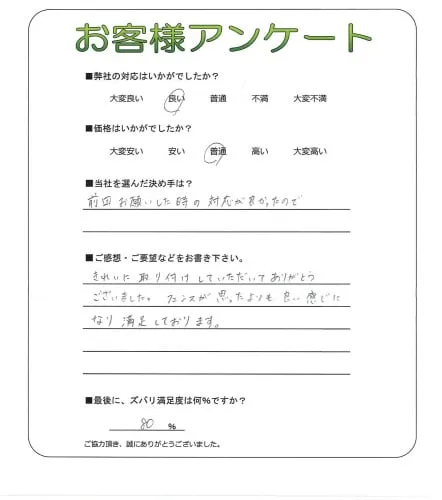 お客様アンケート
■弊社の対応はいかがでしたか？
大変良い 良い 普通 不満 大変不満
■価格はいかがでしたか？
大変安い 安い 普通 高い 大変高い
■当社を選んだ決め手は？
前回お願いした時の対応が良かったので
■ご感想・ご要望などをお書き下さい。
きれいに取り付けしていただいてありがとう
ございました。フェンスが思ったよりも良い感じに
なり満足しております。
■最後に、ズバリ満足度は何％ですか？
80 ％
ご協力頂き、誠にありがとうございました。